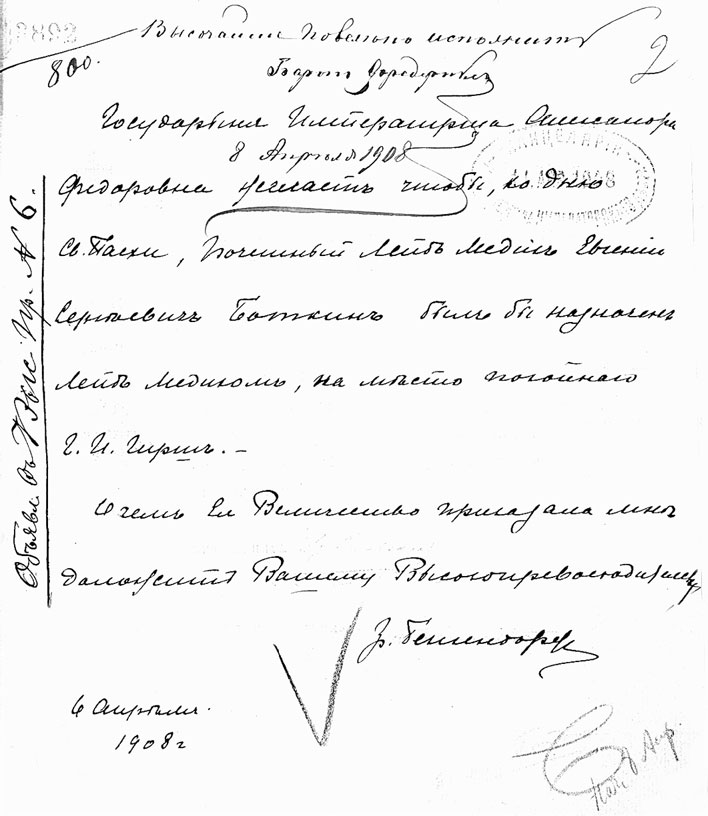 Высочайше повелено исполнить
800.
2
Баронъ Фредериксъ
Государыня Императрица Александра
8 Апрѣля 1908
Федоровна желаетъ чтобы, ко дню
Св. Пасхи, Почетный Лейбъ Медикъ Евгеній
Сергѣевичъ Боткинъ былъ бы назначенъ
Лейбъ Медикомъ, на мѣсто покойнаго
Г. И. Гиршъ. –
О чемъ Ея Величество приказала мнѣ
доложить Вашему Высокопревосходительству
Гр. Бенкендорфъ
6 Апрѣля.
1908 г
Объявл. въ Выс. Пр. № 6.
КАНЦЕЛЯРІЯ
8 Апр.